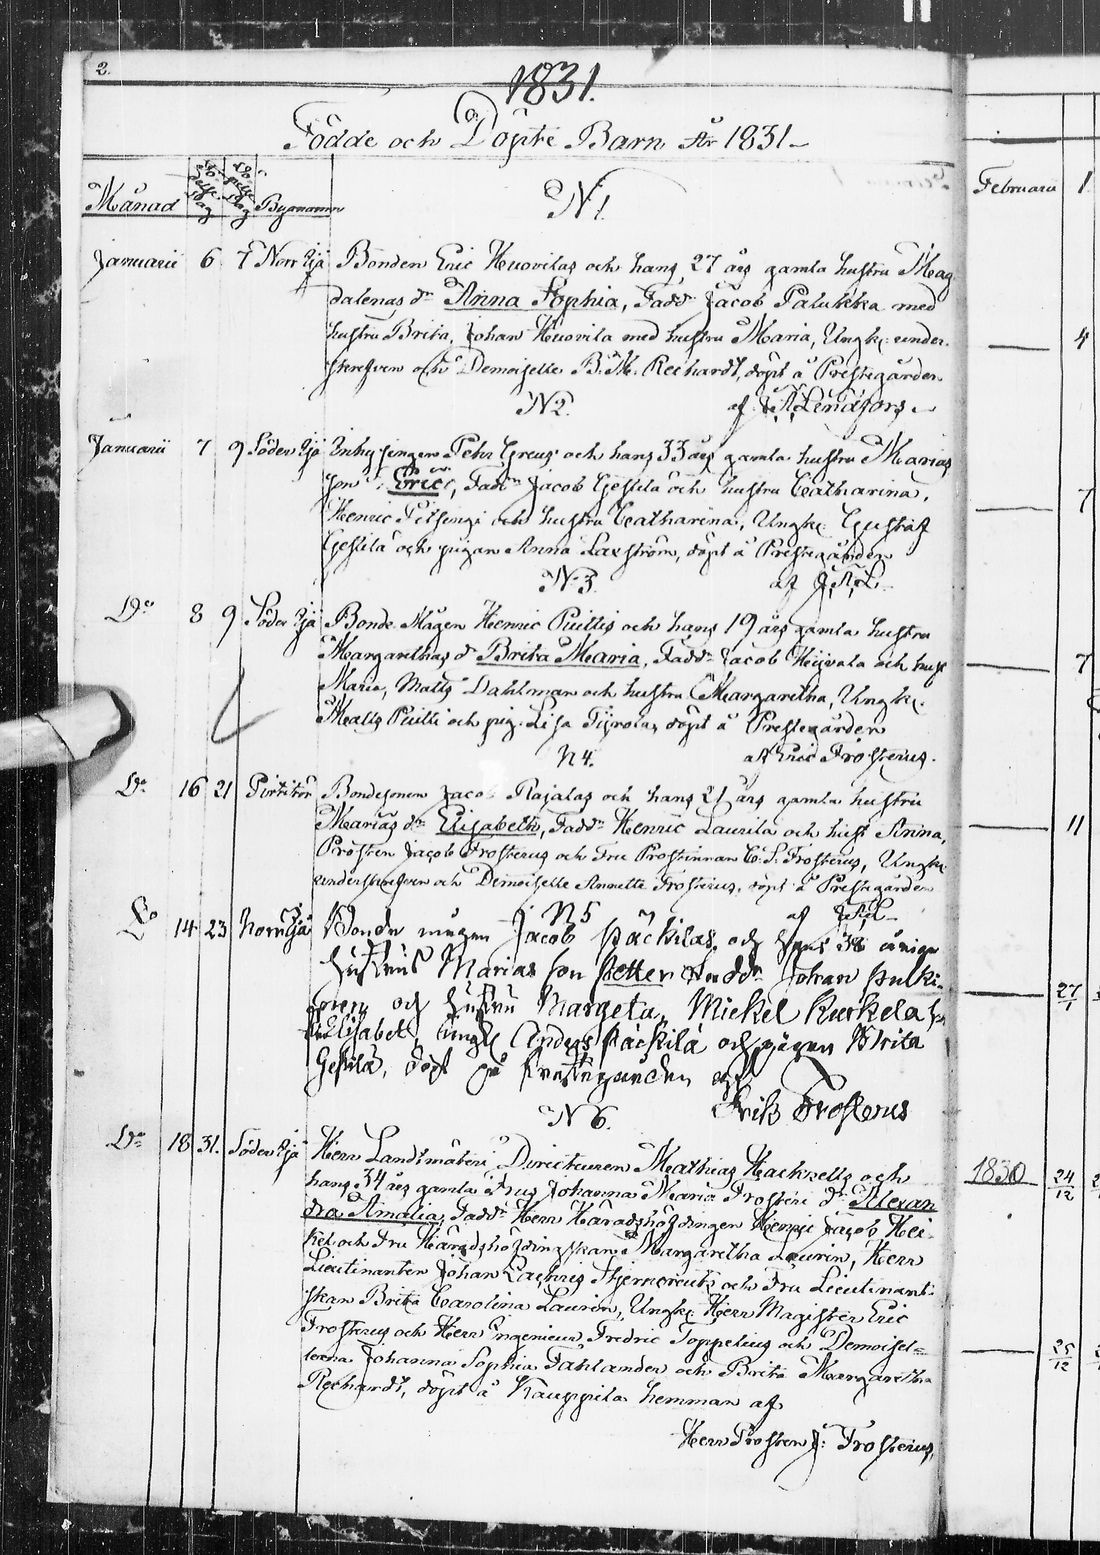 2.
1831.
Födde och Döpte Barn År 1831
Månad Fö-delse Dag Dö-pelse Dag Bynamn
N 1.
Januarii 6 7 Norr Ijå Bonden Eric Huovilas och hans 27 års gamla hustru Mag
dalenas dr Anna Sophia, Faddr Jacob Palukka med
hustru Brita, Johan Huovila med hustru Maria, Ungk: under-
skrefven och Demoiselle B. M. Rechardt, döpt å Prestegården
N 2. af J. A. Lindfors
Januarii 7 9 Söder Ijå Inhysingen Petr Greus och hans 33 års gamla hustru Marias
son Eric, Faddr Jacob Gestilä och hustru Catharina,
Henric och hustru Catharina, Ungk: Gustaf
Gestilä och pigan Anna Laxström, döpt å Prestegården
N 3. af J. A. L.
Do 8 9 Söder Ijå Bonde Mågen Henric Puittis och hans 19 års gamla hustru
Margarethas dr Brita Maria, Faddr Jacob och hust
Maria, Matts Dahlman och hustru Margaretha, Ungk:
Matts Puitti och pig: Lisa döpt å Prestegården
N 4. af Eric Frosterus.
Do 16 21 Bondesonen Jacob Rajalas och hans 21 års gamla hustru
Marias dr Elisabeth, Faddr Henric Laurila och hust Anna,
Prosten Jacob Frosterus och Fru Prostinnan C. S. Frosterus, Ungk:
underskrefven och Demoiselle Annette Frosterus, döpt å Prestegården
N 5 af J. A. L.
Do 14 23 Norr Ijå Bonde mågen Jacob Päckilas och hans 38 åriga
hustrus Marias son Petter Faddr Johan Pulki-
och hustru Margeta, Mickel Kurkela
Elisabet, Ungk Anders Päckilä och pigan Brita
Gestilä, döpt på Prestegården af
Erik Frosterus
N 6.
Do 18 31. Söder Ijå Herr Landtmäteri Directeuren Mathias Hacksells och
hans 34 års gamla Frus Johanna Maria Frosteri dr Alexan
dra Amalia, Faddr Herr Häradshöfdingen Henric Jacob Hei-
kel och Fru Häradshöfdingskan Margaretha Laurin, Herr
Lieutinanten Johan Zachris Stjerncreutz och Fru Lieutinant-
skan Brita Carolina Laurin, Ungk: Herr Magister Eric
Frosterus och Herr Ingenieur Fredric Toppelius och Demoisel=
lerna Johanna Sophia Fahlander och Brita Margaretha
Rechardt, döpt å Kauppila hemman af
Herr Prosten J: Frosterus,
Februarii 1
4
7
7
11
27/1
1830 24/12
25/12